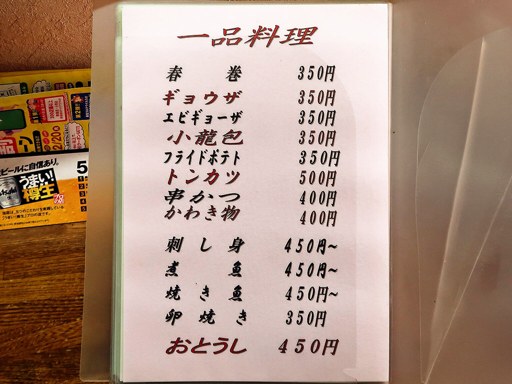 一品料理
春 巻 350円
ギョウザ 350円
エビギョーザ 350円
小龍包 350円
フライドポテト 350円
トンカツ 500円
串かつ 400円
かわき物 400円
刺し身 450円~
煮 魚 450円~
焼き魚 450円~
卵焼き 350円
おとうし 450円
ビールに自信あり。
Asahi
うまい!
樽生